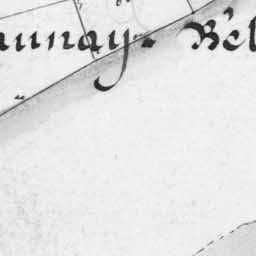 aunay. Bel